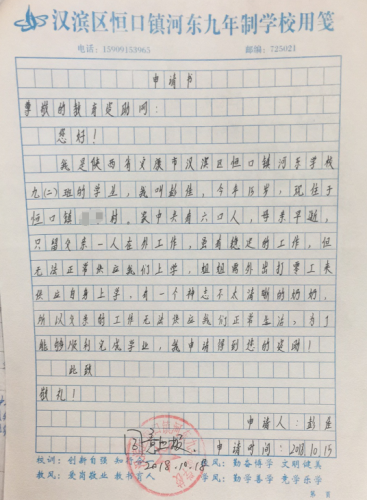 汉滨区恒口镇河东九年制学校用笺
电话：15909153965 邮编：725021
申请书
尊敬的教育资助网：
您好！
我是陕西省安康市汉滨区恒口镇河东学校
九(二)班的学生，我叫彭佳，今年15岁，现住于
恒口镇 村，家中共有六口人，母亲早逝，
只留父亲一人在外工作，虽有稳定的工作，但
无法正常供应我们上学，姐姐需外出打零工来
供应自身上学，有一个神志不太清晰的奶奶，
所以父亲的工作无法供应我们正常生活，为了
能够顺利完成学业，我申请得到您的资助！
此致
敬礼！
申请人：彭佳
申请时间：2018.10.15
2018.10.18
校训：创新自强 知 校风：勤奋博学 文明健美
教风：爱岗敬业 教书育人 学风：勤学善学 竞学乐学